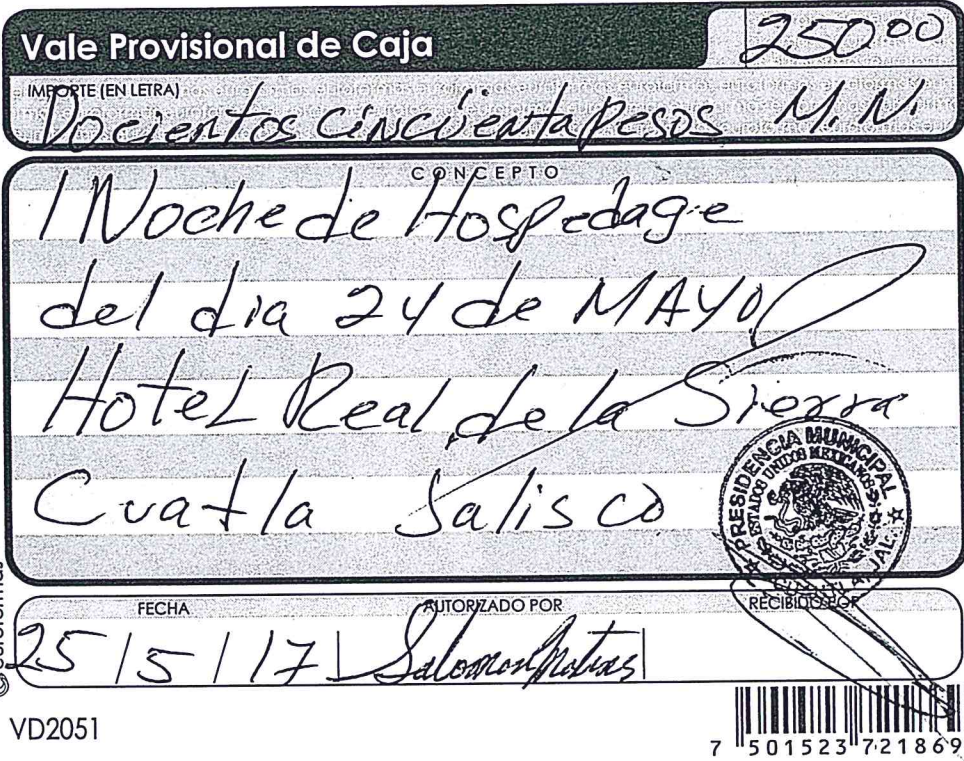 Vale Provisional de Caja
250 00
IMPORTE (EN LETRA)
Docientos Cincuenta Pesos M.N.
CONCEPTO
1 Noche de Hospedage
del dia 24 de MAYO
Hotel Real de la Sierra
Cuatla Jalisco
PRESIDENCIA MUNICIPAL
ESTADOS UNIDOS MEXICANOS
JAL.
FECHA AUTORIZADO POR RECIBIDO POR
25/5/17 Salomon
VD2051
7 501523 721869